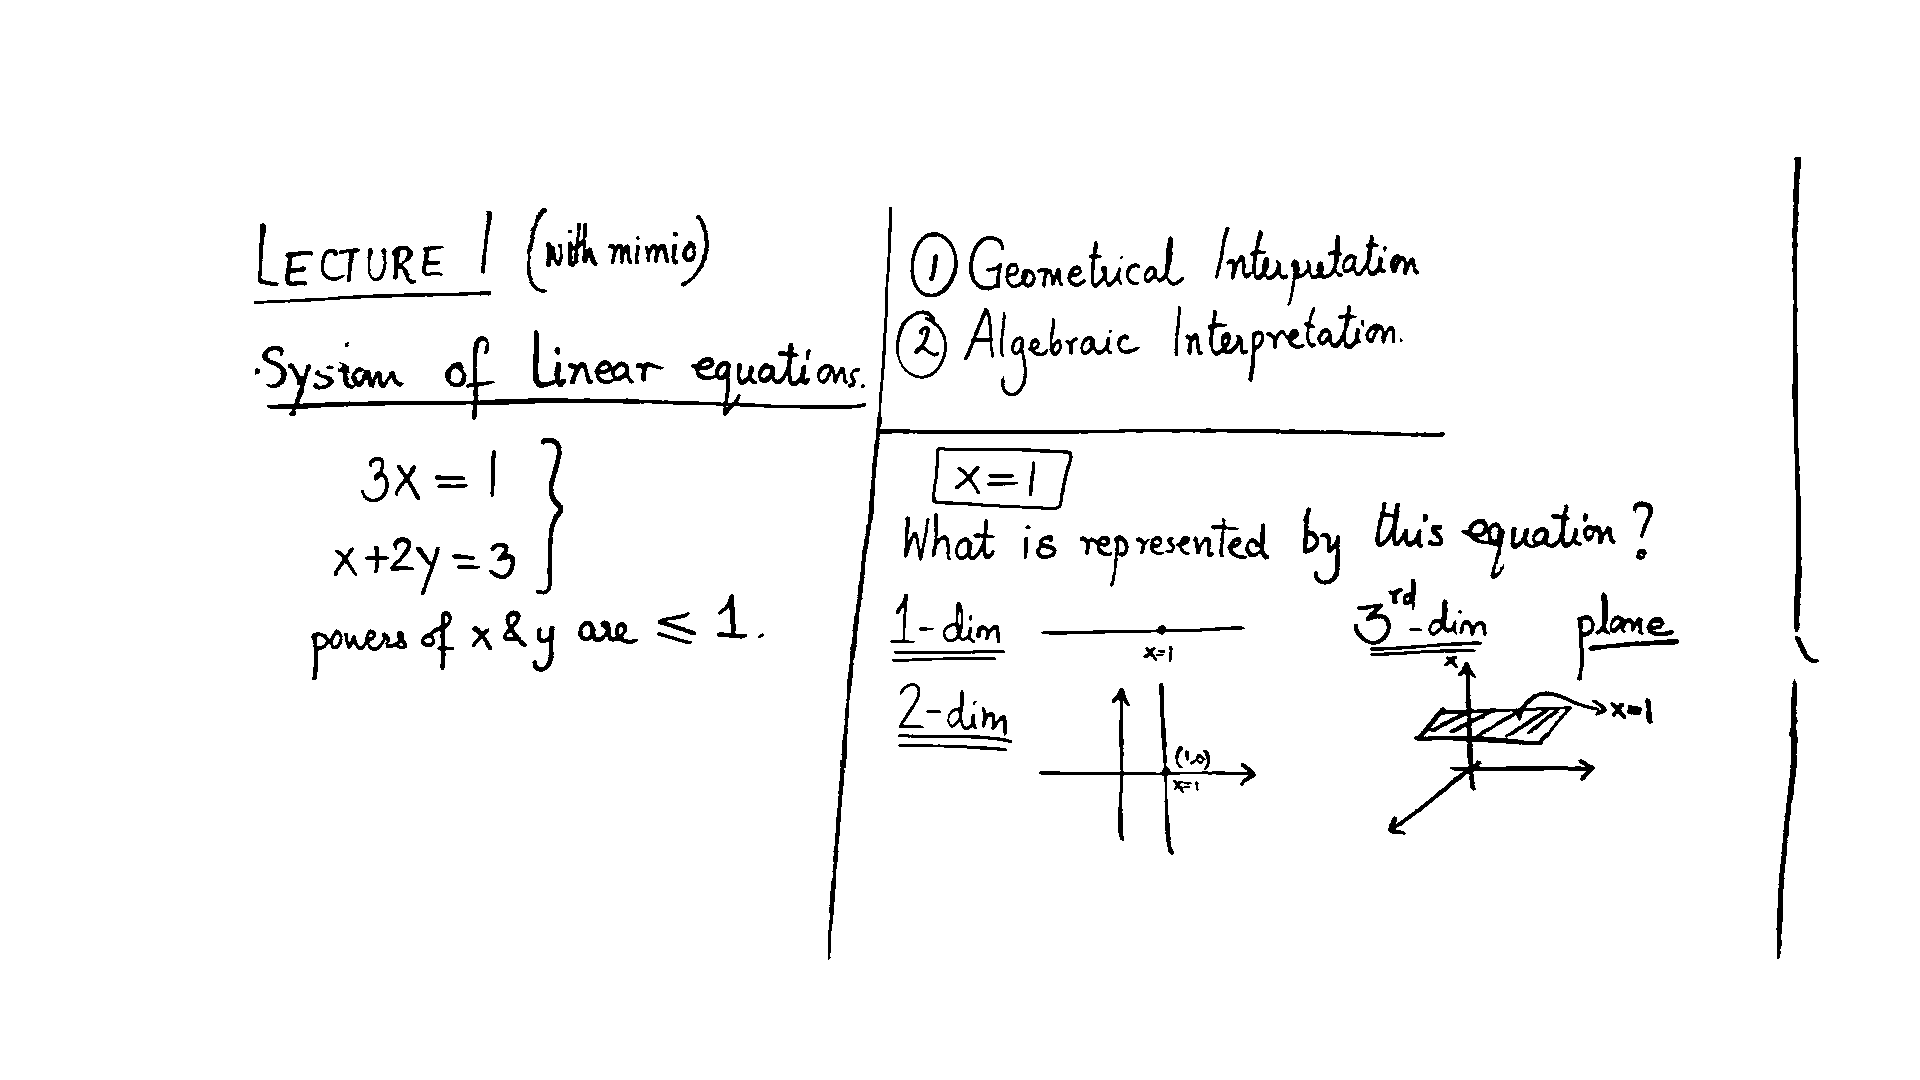 LECTURE 1 (with mimio)
System of Linear equations.
3x = 1
x+2y = 3
powers of x & y are ≤ 1.
① Geometrical Interpretation
② Algebraic Interpretation.
x=1
What is represented by this equation?
1-dim
x=1
2-dim
(1,0)
x=1
3rd-dim plane
x
x=1